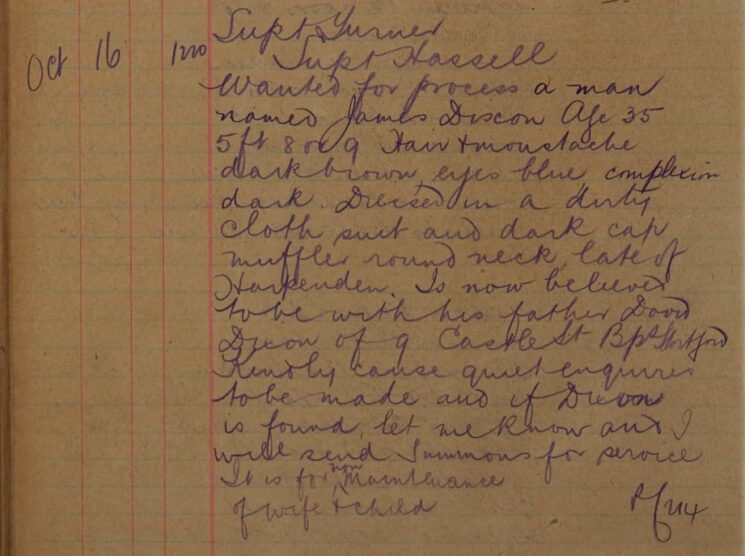 Oct 16 1220 Supt Turner
Supt Hassell
Wanted for process a man
named James Dixon Age 35
5ft 8 or 9 Hair & moustache
dark brown, eyes blue, complexion
dark. Dressed in a dirty
cloth suit and dark cap
muffler round neck, late of
Harpenden. Is now believed
to be with his father David
Dixon of 9 Castle St Bps Stortford
Kindly cause quiet enquiries
to be made and if Dixon
is found, let me know and I
will send Summons for service
It is for non Maintenance
of wife & child PC 214